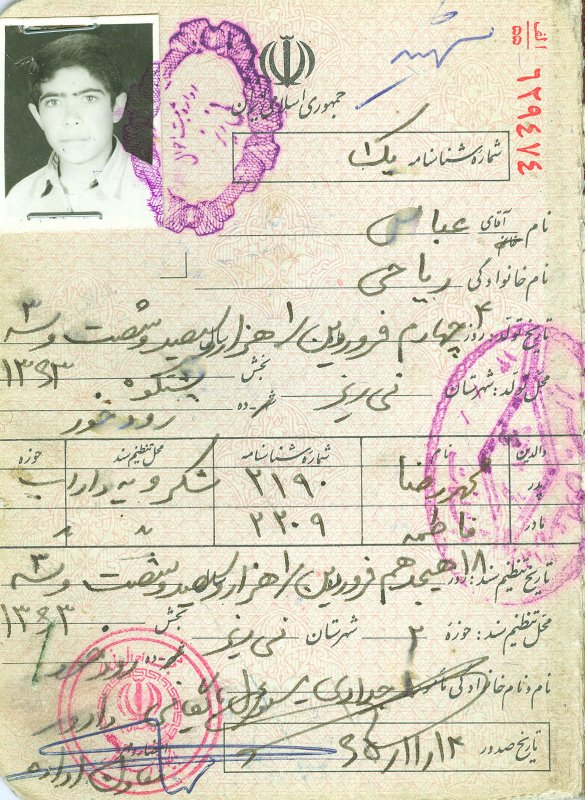 شهید
الف
۵۵
۶۳۹۴۷۴
جمهوری اسلامی ایران
شماره شناسنامه یک ۱
نام آقای عباس
خانم
نام خانوادگی ریاحی
تاریخ تولد: روز ۴ چهارم فروردین ۱/ هزار و سیصد و شصت و سه ۳
محل تولد: شهرستان نی ریز بخش پشتکوه ۱۳۶۳
شهر-ده رودخور
والدین نام شماره شناسنامه محل تنظیم سند حوزه
پدر محمدرضا ۲۱۹۰ شکرویه داراب
مادر فاطمه ۲۲۰۹ " "
تاریخ تنظیم سند: روز ۱۸ هیجدهم فروردین ۱/ هزار و سیصد و شصت و سه ۳
محل تنظیم سند: حوزه ۲ شهرستان نی ریز بخش ۰ ۱۳۶۳
شهر-ده رودخور
نام و نام خانوادگی مأمور
تاریخ صدور